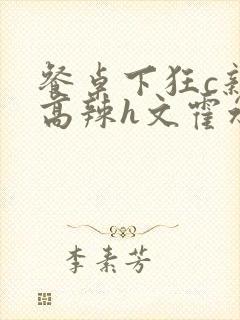 餐桌下狂c亲
高辣h文霍水
李素芳